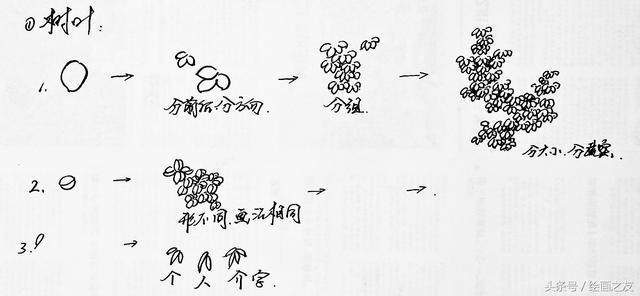 ①树叶：
1. 分前后、分方向. 分组. 分大小、分疏密.
2. 形不同、画法相同
3. 个 人 介字.
头条号／绘画之友